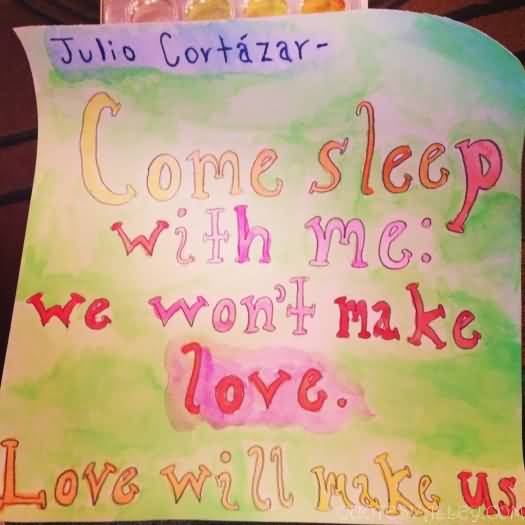 Julio Cortázar-
Come sleep
with me:
we won't make
love.
Love will make us